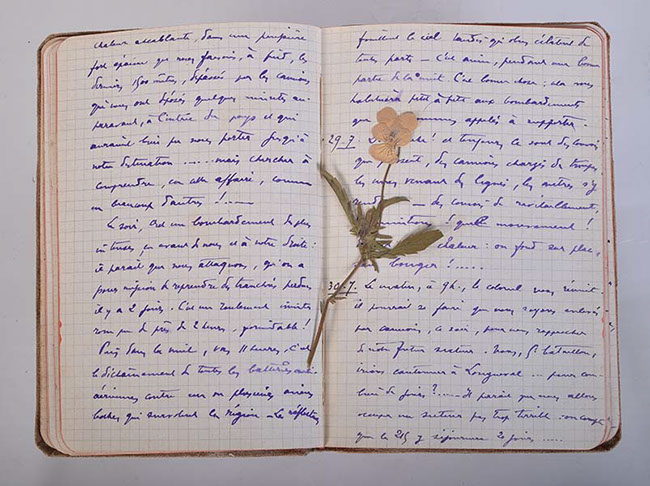 chaleur accablante, dans une poussière
fort épaisse que nous faisons, à pied, les
derniers 1500 mètres, dépassés par les camions
qui nous ont déposés quelques minutes au-
paravant, à l'entrée du pays et qui
auraient bien pu nous porter jusqu'à
notre destination ...... mais chercher à
comprendre, en cette affaire, comme
en beaucoup d'autres ! .......
Le soir, c'est un bombardement des plus
intenses, en avant de nous et à notre droite :
il parait que nous attaquons, qu'on a
pour mission de reprendre des tranchées perdues
il y a 2 jours. C'est un roulement ininter
rompu de près de 2 heures, formidable !
Puis, dans la nuit, vers 11 heures, c'est
le déchainement de toutes les batteries anti-
aériennes contre un ou plusieurs avions
boches, qui survolent la région. Les réflecteurs
fouillent le ciel tandis que des éclatent de
toutes parts – C'est ainsi, pendant une bonne
partie de la nuit. C'est bonne chose : cela nous
habituera petit à petit aux bombardements
que sommes appelés à supporter.
29.7. ! et toujours, ce sont des convois
qui passent, des camions chargés de troupes,
les unes venant des lignes, les autres s'y
– des convois de ravitaillement,
munitions ! quel mouvement !
chaleur : on fond sur place,
bouger ! .....
30.7. Le matin, à 9h., le colonel nous réunit :
il pourrait se faire que nous soyons enlevés
par camions, ce soir, pour nous rapprocher
de notre futur secteur. Nous, 5e bataillon,
irions cantonner à Longueval ... pour com-
bien de jours ? ..... Il parait que nous allons
occuper un secteur pas trop terrible : on compte
que le 215 y séjournera 20 jours .....